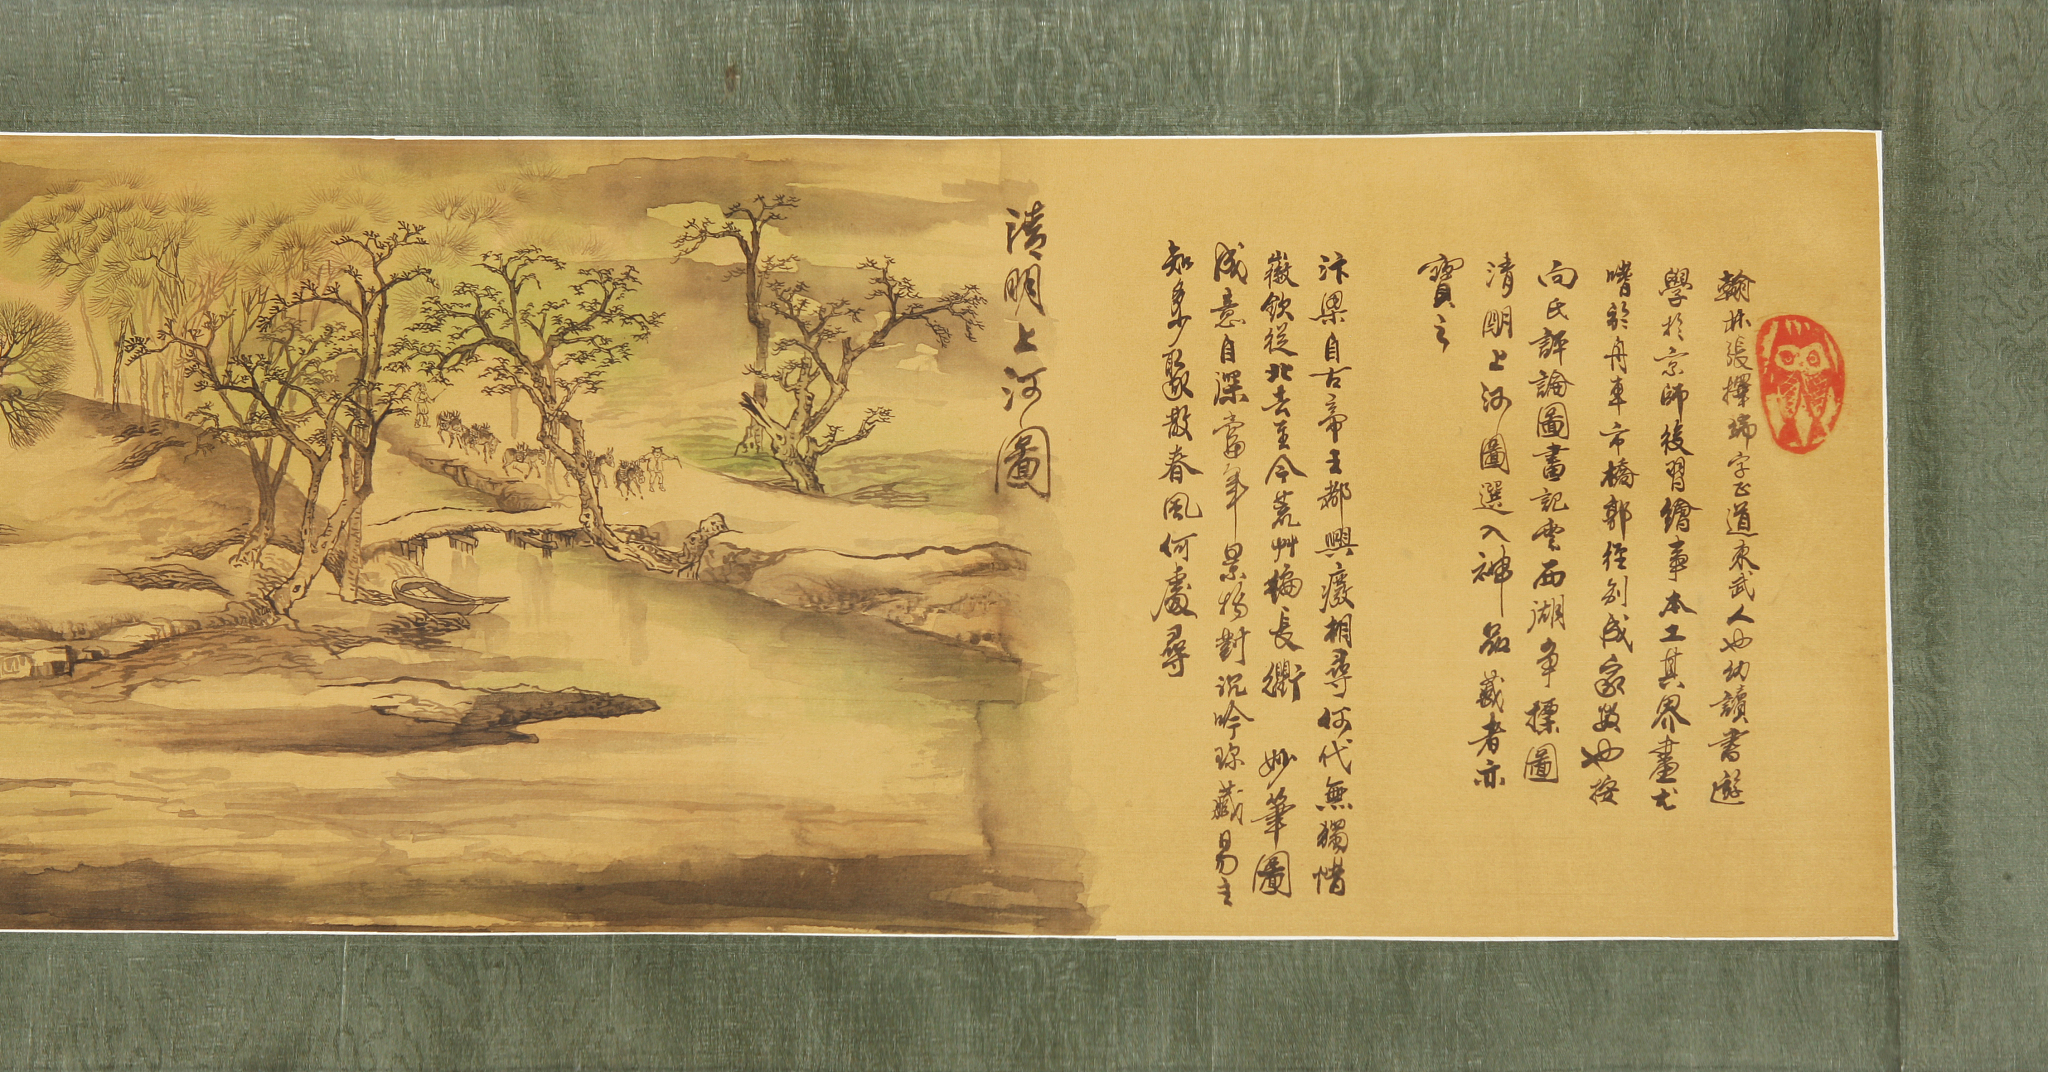 翰林張擇端字正道東武人也幼讀書遊
學於京師後習繪事本工其界畫尤
嗜於舟車市橋郭徑別成家數也按
向氏評論圖畫記云西湖爭標圖
清明上河圖選入神品藏者亦
寶之
汴梁自古帝王都興廢相尋何代無獨惜
徽欽從北去至今荒艸遍長衢 妙筆圖
成意自深當年景物對沉吟珍藏易主
知多少聚散春風何處尋
清明上河圖